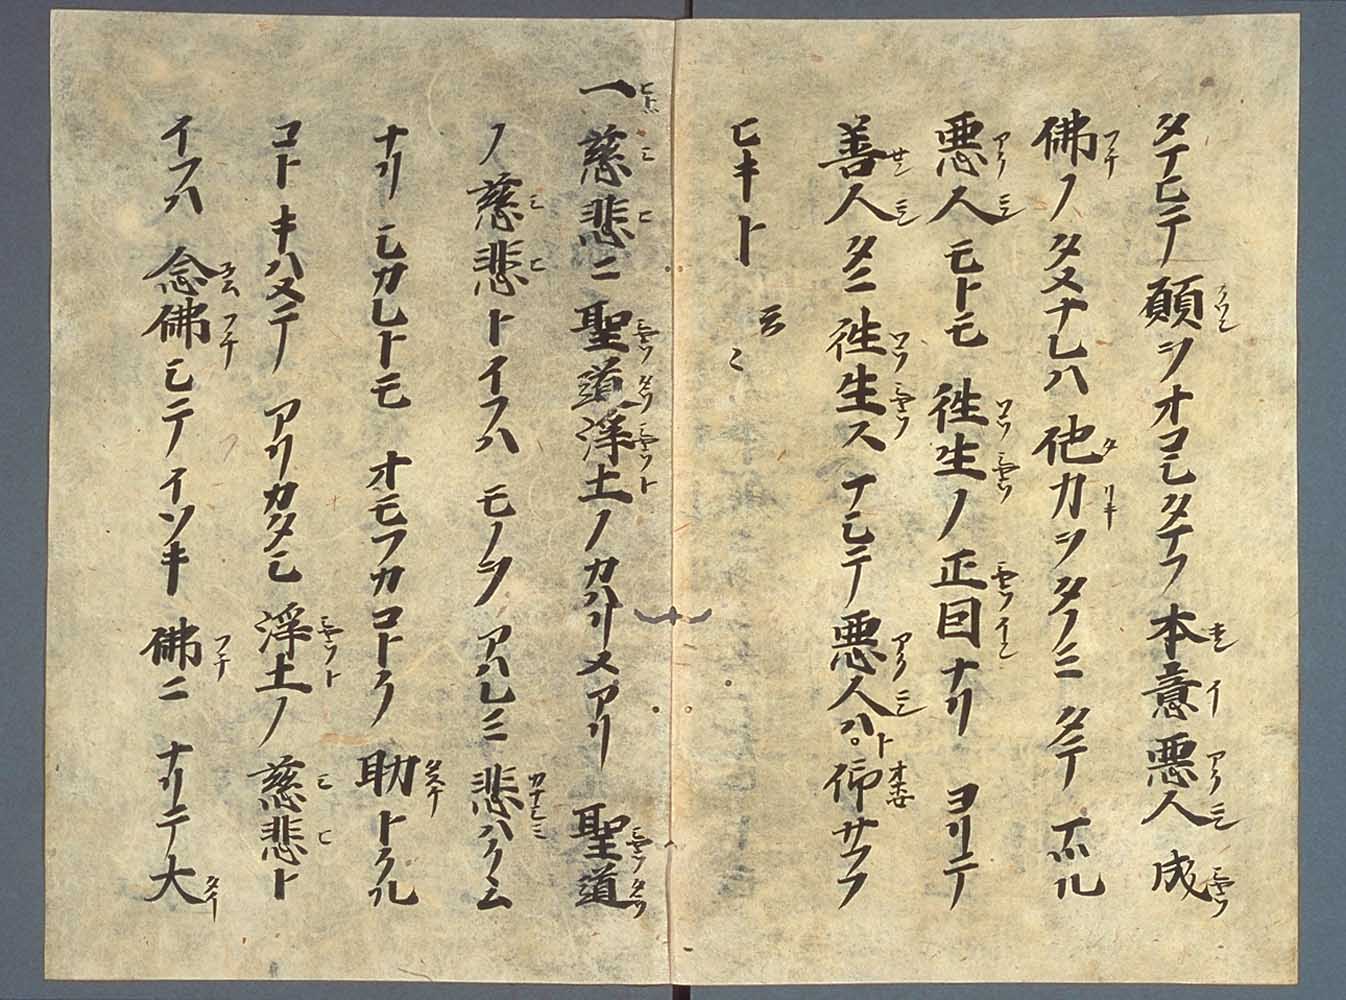 タマヒテ願ヲオコシタマフ本意悪人成
佛ノタメナレハ他力ヲタノミタテマツル
悪人モトモ往生ノ正因ナリヨリテ
善人タニ往生スマシテ悪人ハト仰サフラ
ヒキト云々
一慈悲ニ聖道浄土ノカハリメアリ聖道
ノ慈悲トイフハモノヲアハレミ悲ハククム
ナリシカレトモオモフカコトク助トクル
コトキハメテアリカタシ浄土ノ慈悲ト
イフハ念佛シテイソキ佛ニナリテ大